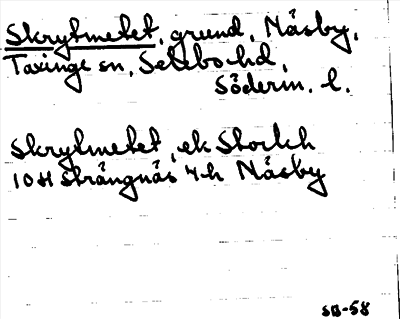 Skrytmetet, grund, Näsby,
Taxinge sn, Selebo hd,
Söderm. l.
Skrytmetet, ek Storch
10H Strängnäs 4h Näsby
SB-58